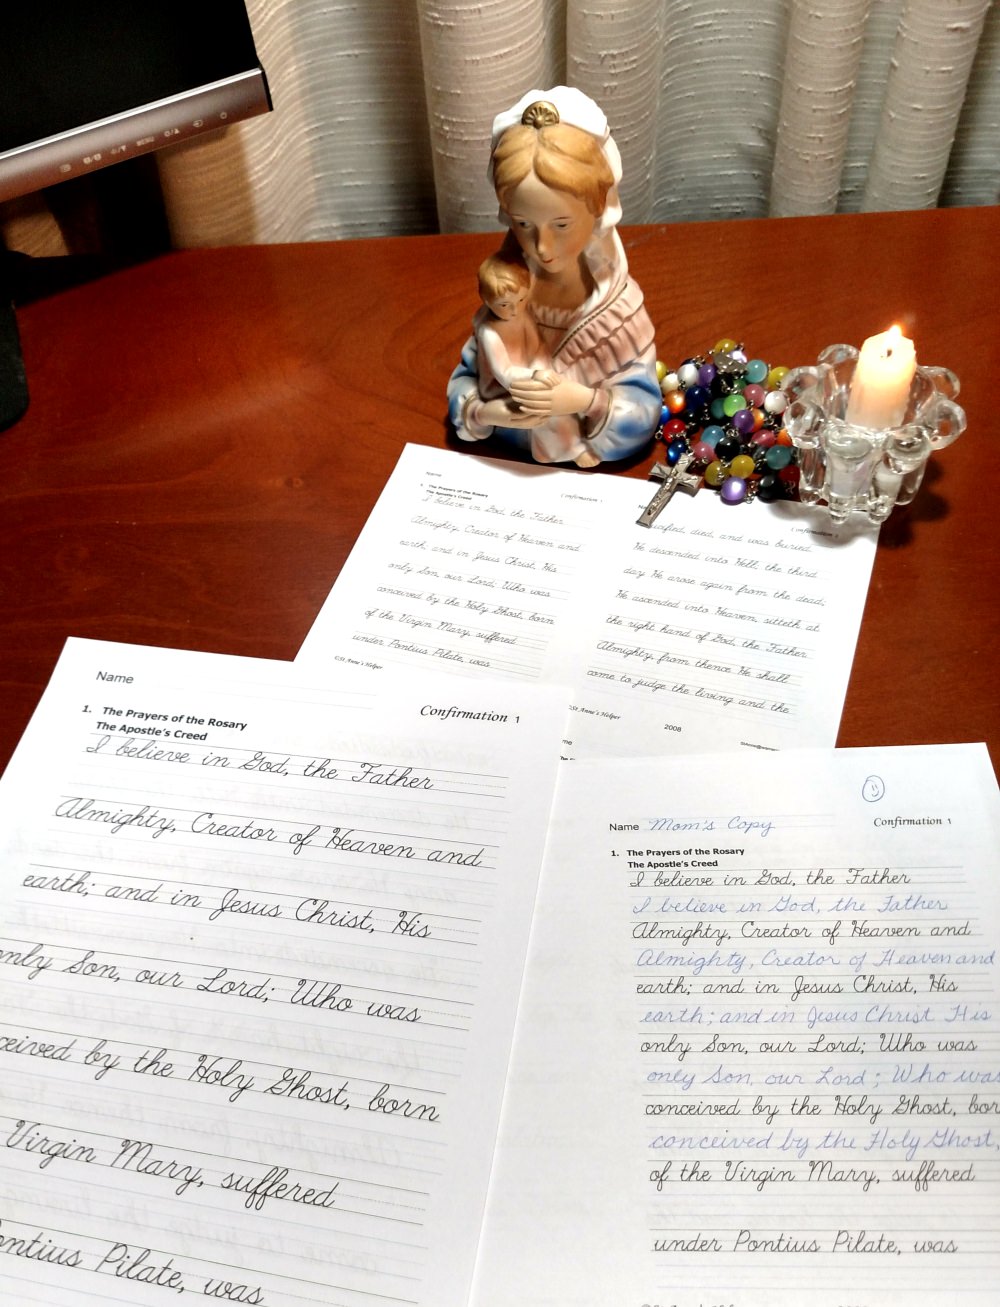 Name
Confirmation 1
1. The Prayers of the Rosary
The Apostle's Creed
I believe in God, the Father
Almighty, Creator of Heaven and
earth; and in Jesus Christ, His
only Son, our Lord; Who was
conceived by the Holy Ghost, born
of the Virgin Mary, suffered
under Pontius Pilate, was
©St. Anne's Helper
Confirmation 2
died, and was buried.
He descended into Hell; the third
day He arose again from the dead;
He ascended into Heaven, sitteth at
the right hand of God, the Father
Almighty; from thence He shall
come to judge the living and the
©St. Anne's Helper
2008
Name
Confirmation 1
1. The Prayers of the Rosary
The Apostle's Creed
I believe in God, the Father
Almighty, Creator of Heaven and
earth; and in Jesus Christ, His
only Son, our Lord; Who was
ceived by the Holy Ghost, born
Virgin Mary, suffered
ontius Pilate, was
Name Mom's Copy
Confirmation 1
1. The Prayers of the Rosary
The Apostle's Creed
I believe in God, the Father
I believe in God, the Father
Almighty, Creator of Heaven and
Almighty, Creator of Heaven and
earth; and in Jesus Christ, His
earth; and in Jesus Christ His
only Son, our Lord; Who was
only Son, our Lord; Who was
conceived by the Holy Ghost, bor
conceived by the Holy Ghost,
of the Virgin Mary, suffered
under Pontius Pilate, was